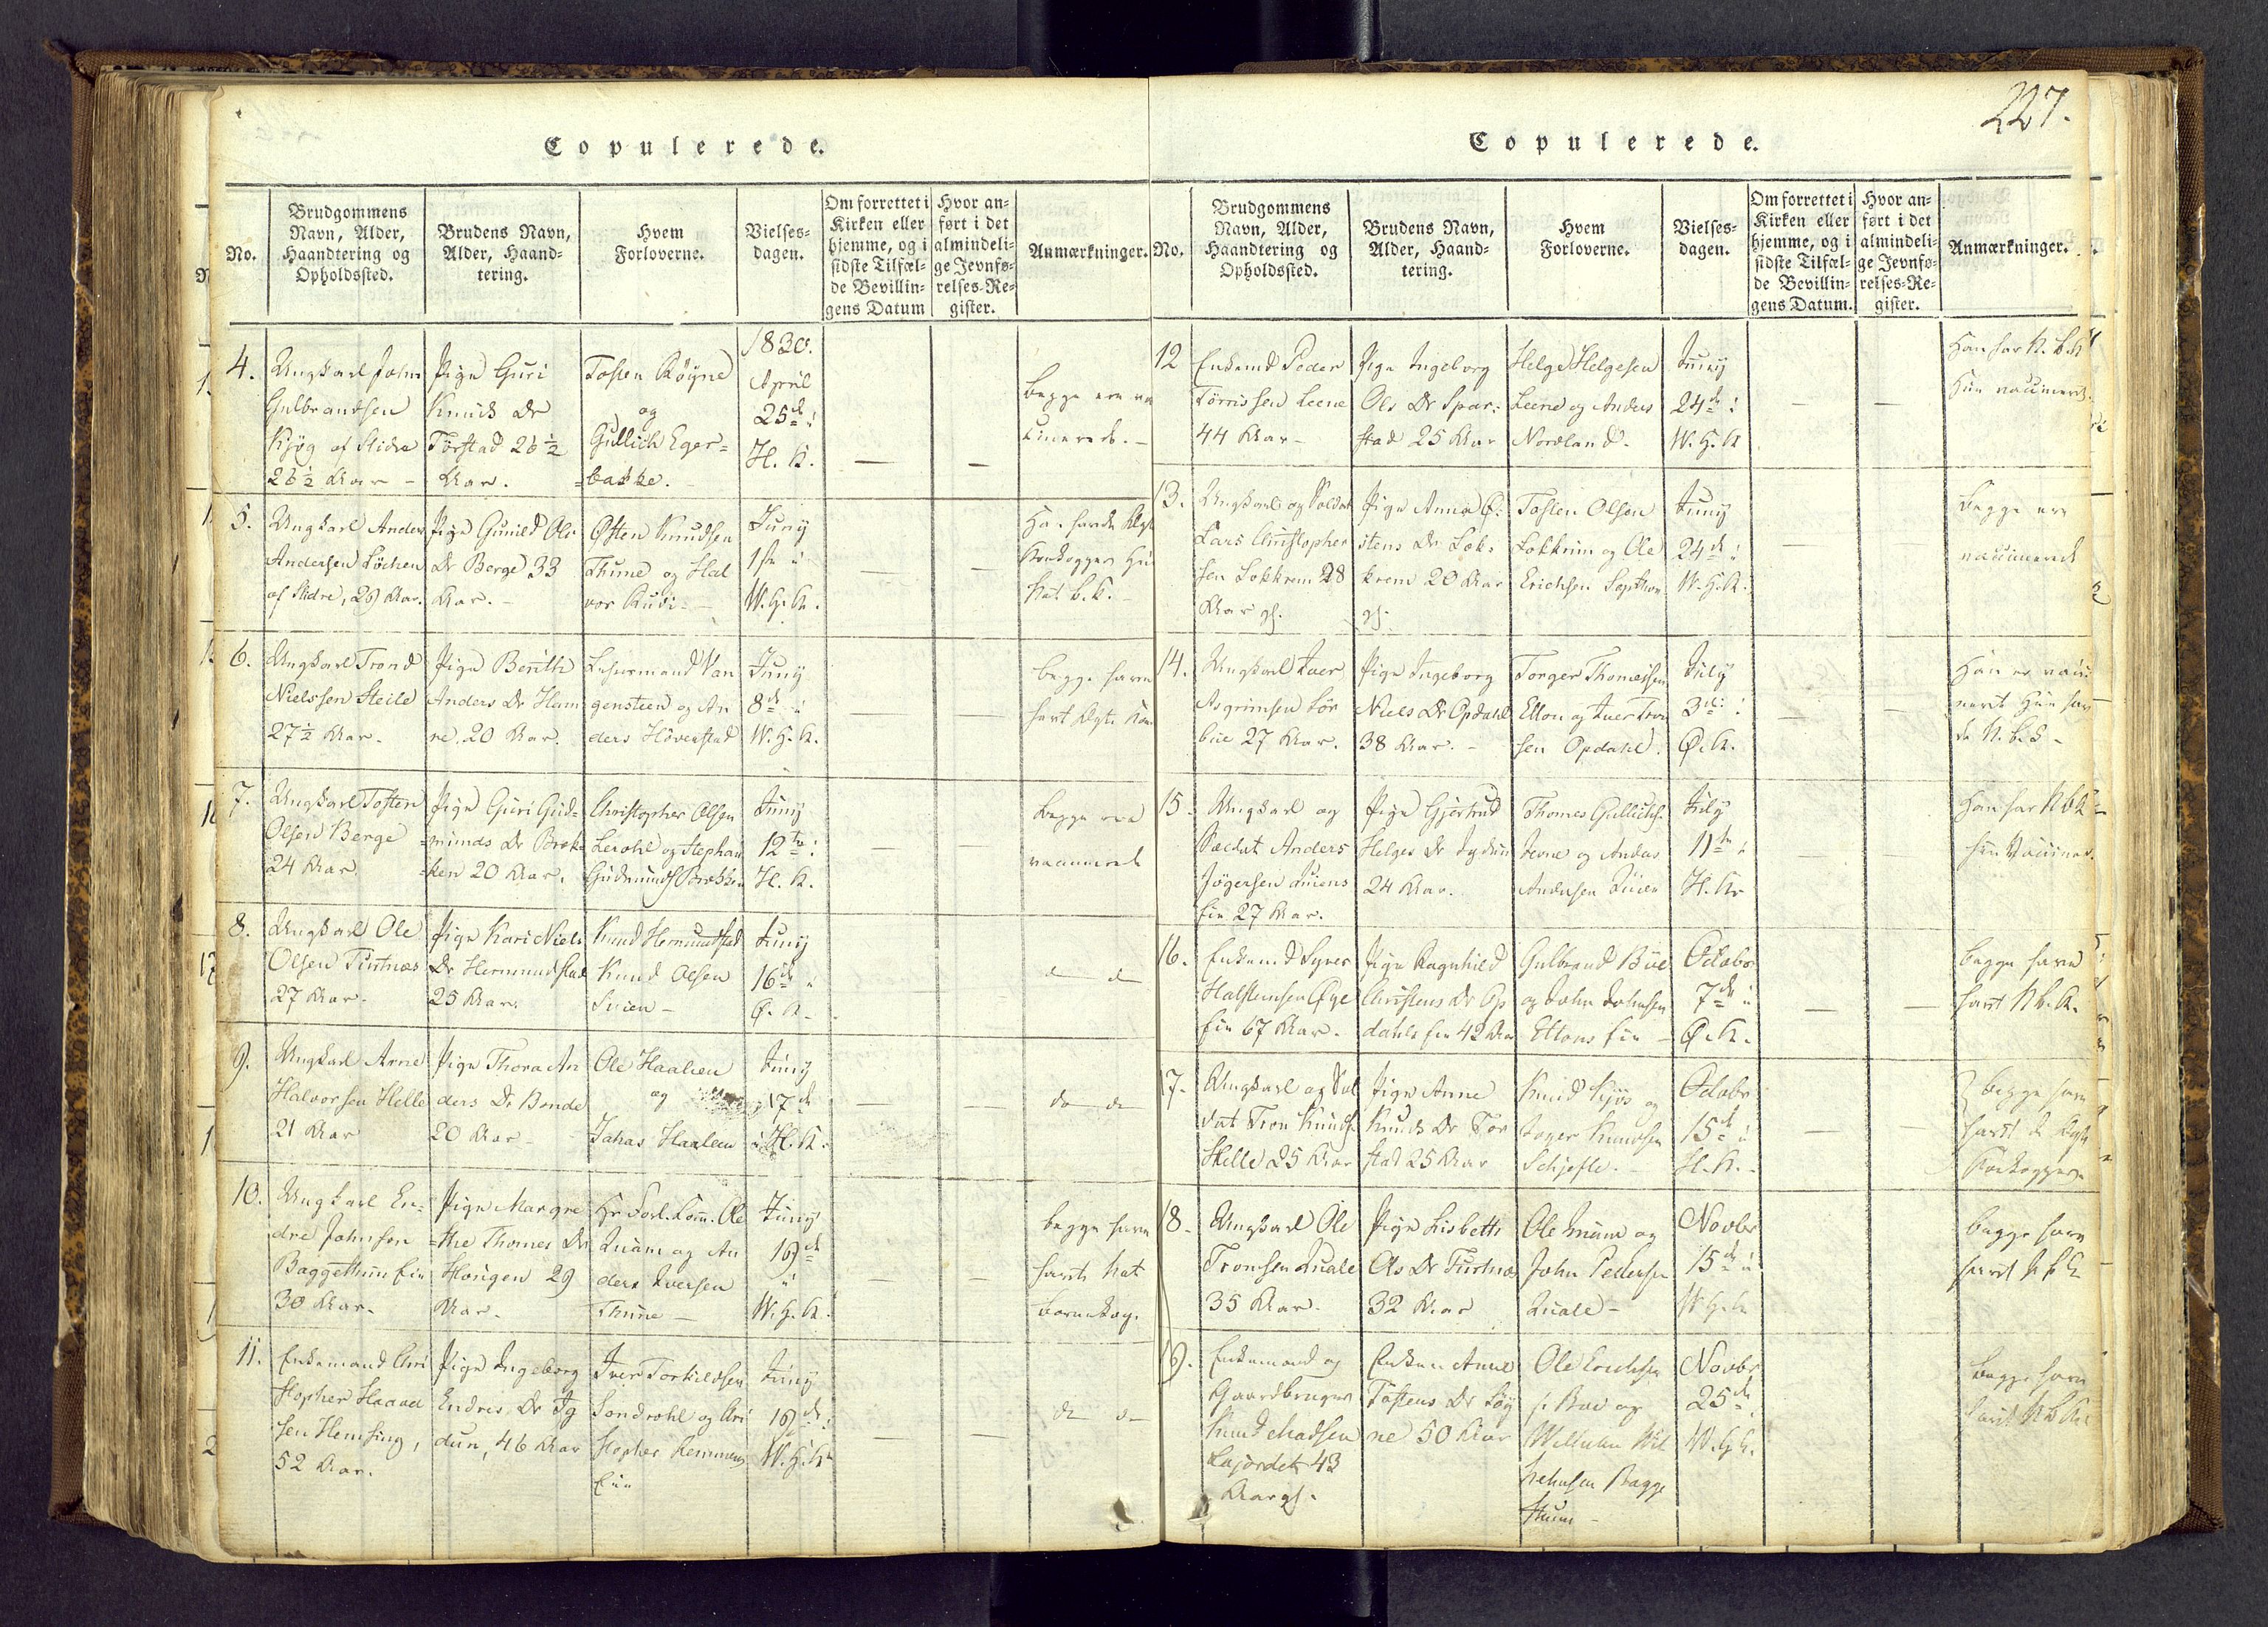 Copulerede.
No.
Brudgommens
Navn, Alder,
Haandtering og
Opholdssted.
Brudens Navn,
Alder, Haand-
tering.
Hvem
Forloverne.
Vielses-
dagen.
Om forrettet i
Kirken eller
hjemme, og i
sidste Tilfæl-
de Bevillin-
gens Datum
Hvor an-
ført i det
almindeli-
ge Jevnfø-
relses-Re-
gister.
Anmærkninger.
4.
Ungkarl John
Gulbrandsen
Kjøg af Slidre
26½ Aar -
Pige Guri
Knuds Dr
Tørstad 26½
Aar.
Tosten Røyne
og
Gullich Eger=
=bakke.
1830.
April
25de i
H. K.
begge ere va
cinerede.
5.
Ungkarl Anders
Andersen Løchen
af Slidre, 29 Aar.
Pige Gunild Ols
Dr Berge 33
Aar. -
Østen Knudsen
Thune og Hal
vor Rudi -
Juny
1ste i
W. H. K.
6.
Ungkarl Trond
Nielssen Steile
27½ Aar.
Pige Berith
Anders Dr Hem
re, 20 Aar.
Lehnsmand Van
gensteen og An
ders Höverstad
Juny
8de i
W. H. K.
begge have
7.
Ungkarl Tosten
Olsen Berge
24 Aar
Pige Guri Gud=
=munds Dr Brek=
=ken 20 Aar.
Christopher Olsen
Lerohl og Stephan
Gudmunds Brekken
Juny
12te i
H. K.
begge ere
vaccinerede
8.
Ungkarl Ole
Olsen Turtnæs
27 Aar.
Pige Kari Niels
Dr Hermundstad
25 Aar.
Knud Hermundstad
Knud Olsen
Juny
16de i
Ø. K.
d d
9.
Ungkarl Arne
Halvorsen Helle
21 Aar
Pige Thora An
ders Dr Bende
20 Aar -
Ole Haalien
og
Juny
17de
i H. K.
do do
10.
Ungkarl En=
dre Johnsen
Baggethun Eie
30 Aar.
Pige Margre
=the Thomes Dr
Hougen 29
Aar.
Hr Forl. Com. Ole
Quam og An
ders Iversen
Thune -
Juny
19de
i
W. H. K.
begge have
havt nat.
bornekop.
11.
Enkemand Chri
stopher Haavel
sen Hemsing,
52 Aar.
Pige Ingeborg
Endres Dr Ig
dun, 46 Aar
Iver Torkildsen
Sondrohl og Chri
stopher
Eie
Juny
19de i
W. H. K
do do
Copulerede.
227.
No.
Brudgommens
Navn, Alder,
Haandtering og
Opholdssted.
Brudens Navn,
Alder, Haand-
tering.
Hvem
Forloverne.
Vielses-
dagen.
Om forrettet i
Kirken eller
hjemme, og i
sidste Tilfæl-
de Bevillin-
gens Datum.
Hvor an-
ført i det
almindeli-
ge Jevnfø-
relses-Re-
gister.
Anmærkninger.
12
Enkemd Peder
Tørrissen Leene
44 Aar -
Pige Ingeborg
Ols Dr Spar=
stad 25 Aar
Helge Helgesen
Leene og Anders
Nordland.
Juny
24de i
W. H. K
Han har n. b. k
Hun vaccineret.
13.
Ungkarl og Soldat
Lars Christopher
sen Lokkrem 28
Aar gl.
Pige Anna Ø=
stens Dr Lok=
krem 20 Aar
gl.
Tosten Olsen
Lokkrim og Ole
Juny
24de i
W. H. K.
begge ere
vaccinerede
14.
Ungkarl Iver
Asgrimsen Lør
bue 27 Aar.
Pige Ingeborg
Niels Dr Opdahl
38 Aar. -
Torger Thomessen
Elton og Iver Tron
sen Opdahl.
July
3die i
Ø. K.
Han er vacci
neret Hun hav
de n. b. k -
15
Ungkarl og
Soldat Anders
24 Aar.
Eie 27 Aar.
Pige Gjertrud
Helges Dr Igdun
Thomes Gullichs.
July
11te i
H. K.
16.
Enkemd Syver
Halsteinsen Øye
Eie 67 Aar.
Pige Ragnhild
Christens Dr Op
dahls Eie 42 Aar
Gulbrand Bue
og John Johnsen
Eltons Eie -
Octobr
7de i
Ø. K.
begge have
havt n. b. k.
17.
Ungkarl og Sol
dat Tron Knuds.
Helle 25 Aar
Pige Anne
Knuds Dr Tør
stad 25 Aar
Octobr
15de i
H. K.
18.
Ungkarl Ole
Tronsen Quale
35 Aar.
Pige Lisbeth
Ols Dr Turtnæs
32 Aar
Ole Quam og
John Pedersen
Quale -
Novbr
15de i
W. H. K
begge have
havt n. b. k
19.
Enkemand og
Gaardbruger
Knud Madsen
43
Aar gl.
Enken Anne
Tostens Dr Løy
ne 50 Aar
Ole Erichsen
Novbr
25de
W. H. K.
begge have
havt n. b. k